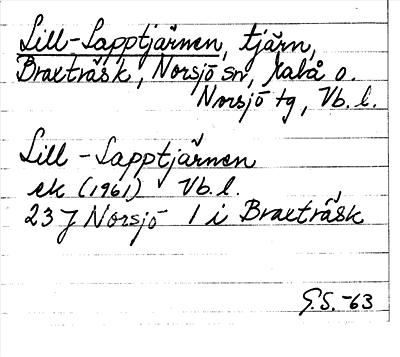 Lill-Lapptjärnen, tjärn,
Braxträsk, Norsjö sn, Malå o.
Norsjö tg, Vb. l.
Lill-Lapptjärnen
ek (1961) Vb. l.
23 J Norsjö 1 i Braxträsk
G.S. -63